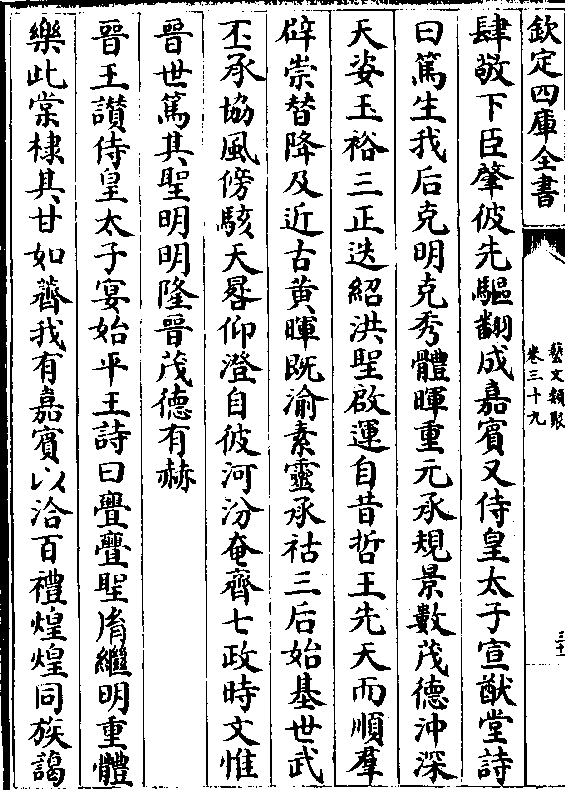 欽定四庫全書
藝文類聚
卷三十九
三十
肆敬下臣肇彼先驅翻成嘉賓又侍皇太子宣猷堂詩
曰篤生我后克明克秀體暉重元承規景數茂德沖深
天姿玉裕三正迭紹洪聖啟運自昔哲王先天而順羣
辟崇替降及近古黃暉既渝素靈承祜三后始基世武
丕承協風傍駭天晷仰澄自彼河汾奄齊七政時文惟
晉世篤其聖明明隆晉茂德有赫
晉王讚侍皇太子宴始平王詩曰亹亹聖胤繼明重體
樂此棠棣其甘如薺我有嘉賓以洽百禮煌煌同族謁